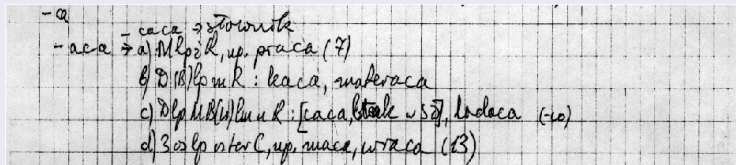 -a
- caca → słownik
-aca → a) M lp ż R, np. praca (7)
b) D(B) lp m R : kaca, materaca
c) D lp MB(W) lm n R : [caca, brak w SJ], ladaca (-10)
d) 3 os lp ster C, np. maca, wraca (13)